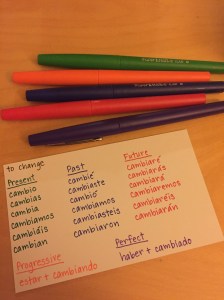 to change
Present
cambio
cambias
cambia
cambiamos
cambiáis
cambian
Past
cambié
cambiaste
cambió
cambiamos
cambiasteis
cambiaron
Future
cambiaré
cambiarás
cambiará
cambiaremos
cambiaréis
cambiarán
Progressive
estar + cambiando
Perfect
haber + cambiado